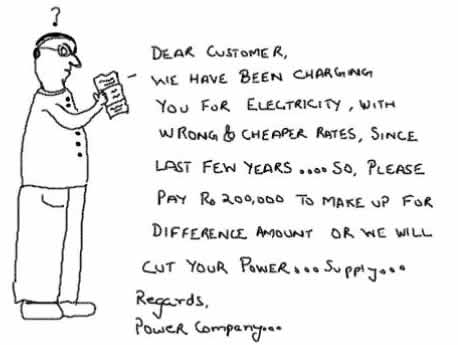 ?
DEAR CUSTOMER,
WE HAVE BEEN CHARGING
YOU FOR ELECTRICITY, WITH
WRONG & CHEAPER RATES, SINCE
LAST FEW YEARS .... SO, PLEASE
PAY Rs 200,000 TO MAKE UP FOR
DIFFERENCE AMOUNT OR WE WILL
CUT YOUR POWER... Supply...
Regards,
Power Company...